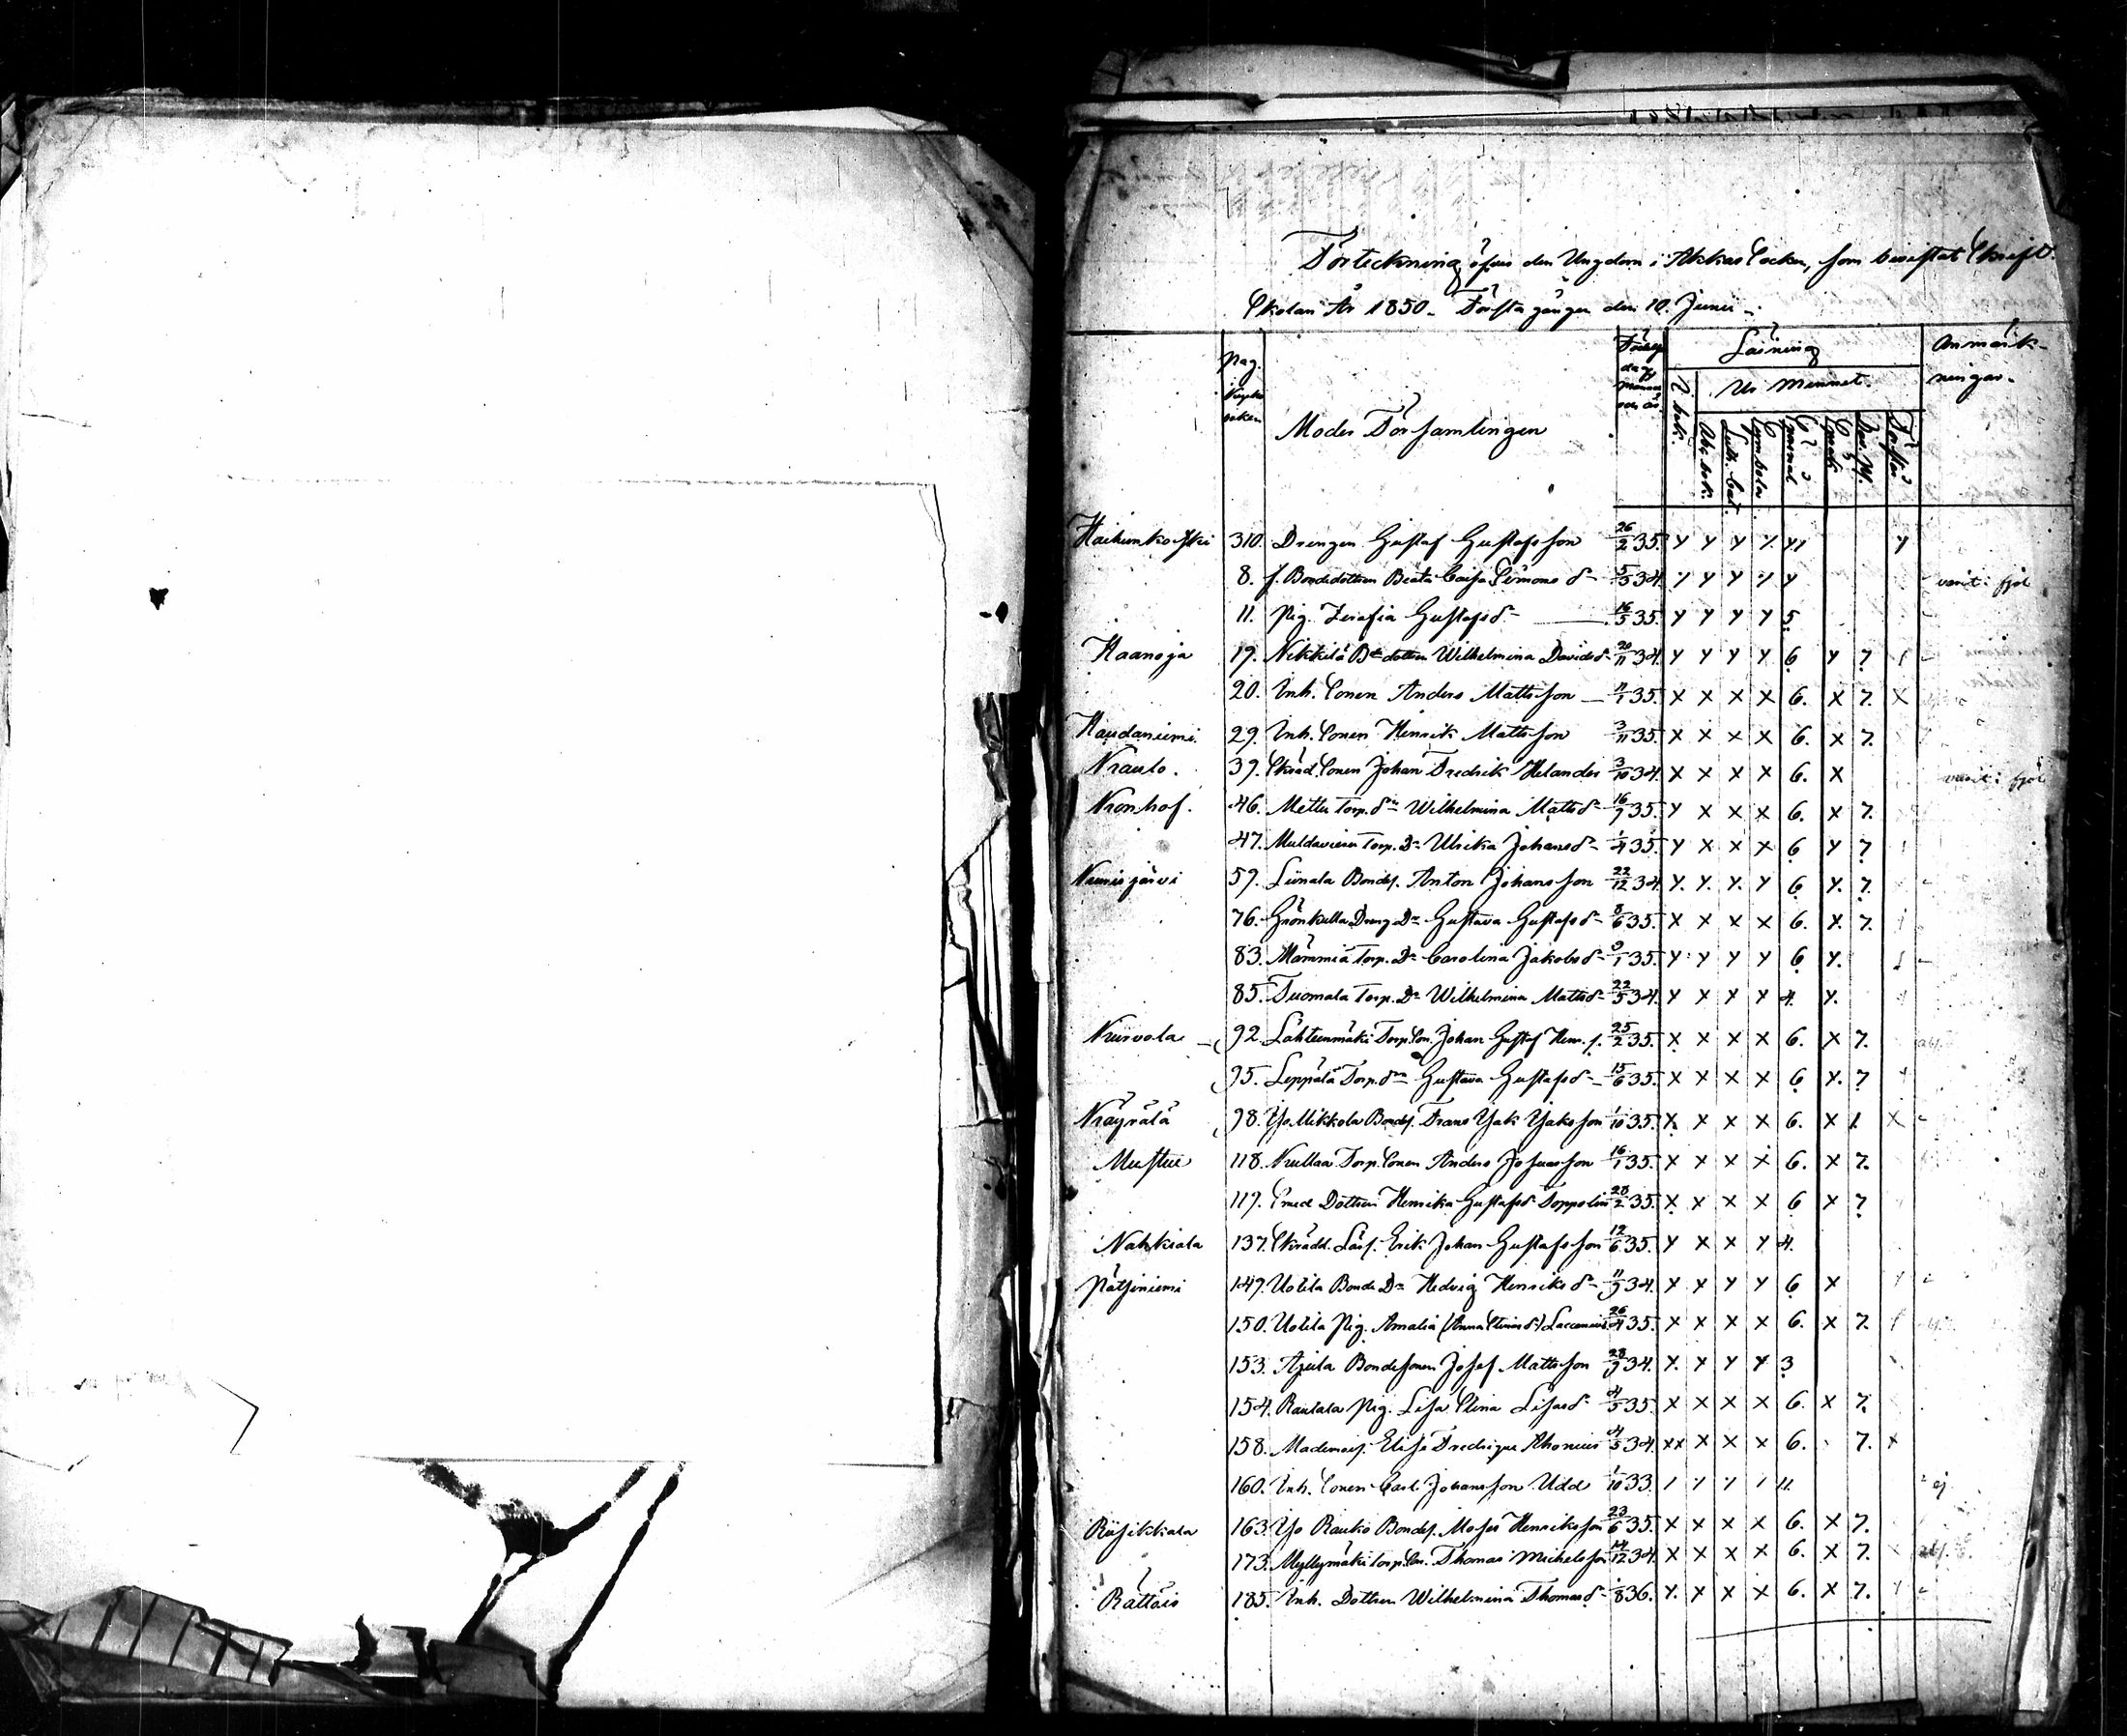 Förteckning öfver den Ungdom i Akkas Socken, som bevistat Skrift-
Skolan År 1850. Första gången den 10. Junii.
Pag. Kyrko boken
Moder Församlingen
Födelse dag, månad och år
Läsning
Anmärk-
ningar.
I bok.
Ur Minnet.
Abc bok.
Luth. Cat.
Symbola
Spörsmål
Förstånd
310. Drengen Gustaf Gustafsson 26/2 35. y y y y y1 y
8. f. Bondedottren Beata Caisa Simons dr 5/5 34. y y y y y varit i fjol
11. Pig. Serafia Gustafs dr 16/5 35. y y y y 5
Haanoja 19. Nikkilä Bde dottren Wilhelmina Davids dr 20/11 34. y y y y 6 y 7
20. Inh. Sonen Anders Mattsson 11/1 35. x x x x 6. x 7. x
Haudaniemi 29. Inh. Sonen Henrik Mattsson 3/11 35. x x x x 6. x 7.
39. Skräd. Sonen Johan Fredrik Helander 3/10 34. x x x x 6. x varit i fjol
Kronhof. 46. Torp. dr Wilhelmina Matts dr 16/9 35. y x x x 6. x 7.
47. Torp. Dr Ulrika Johans dr 1/4 35. y x x x 6 y 7
59. Liunala Bondes. Anton Johansson 22/12 34. y. y. y. y 6 y. 7.
76. Grönkulla Dreng Dr Gustava Gustafs dr 8/6 35. x x x x 6. x. 7.
83. Mämmiä Torp. Dr Carolina Jakobs dr 35. y y y y 6 y.
85. Tuomala Torp. Dr Wilhelmina Matts dr 22/5 34. y x x y 4. y.
Kurvola 92. Lähteenmäki Torp. Son. Johan Gustaf Henr. s. 25/2 35. x x x x 6. x 7.
95. Leppälä Torp. dr Gustava Gustafs dr 15/6 35. x x x x 6 x. 7
Käyrälä 98. Yo Mikkola Bondes. Frans Isak Isaksson 1/10 35. x x x x 6. x x
Mustue 118. Kullaa Torp. Sonen Anders Josuasson 16/1 35. x x x x 6. x 7.
119. Smed Dottren Henrika Gustafs dr Toppelin 28/2 35. x x x x 6 x 7
Nahkiala 137. Skrädd. Lärl. Erik Johan Gustafsson 12/6 35. y x x y 4.
Pätsiniemi 149. Uotila Bonde Dr Hedvig Henriks dr 11/9 34. x x y y 6 x
150. Uotila Pig. Amalia (Anna Stina dr) 26/4 35. x x x x 6. x 7.
153. Ajula Bondesonen Josef Mattsson 28/9 34. y. x y y 3
154. Rautala Pig. Lisa Stina Lisas dr 4/5 35. x x x x 6. x 7.
158. Mademois. Elise Fredrique Ahonius 4/5 34. xx x x x 6. 7. x
160. Inh. Sonen Carl Johansson Udd 1/10 33. ej
Riisikkala 163. Yo Rauko Bondes. Moses Henriksson 23/6 35. x x x x 6. x 7.
173. Myllymäki Torp. Son. Thomas Michelsson 14/12 34. x x x x 6. x 7.
Rättäis 185. Inh. Dottren Wilhelmina Thomas dr 836. y. x x x 6. x 7.